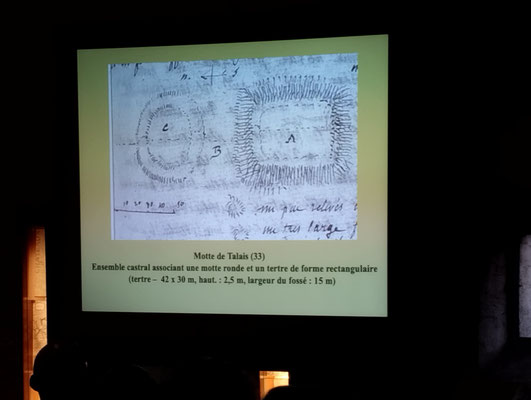 C
B
A
10 20 30 40 50
un peu relevés
un très large
Motte de Talais (33)
Ensemble castral associant une motte ronde et un tertre de forme rectangulaire
(tertre – 42 x 30 m, haut. : 2,5 m, largeur du fossé : 15 m)